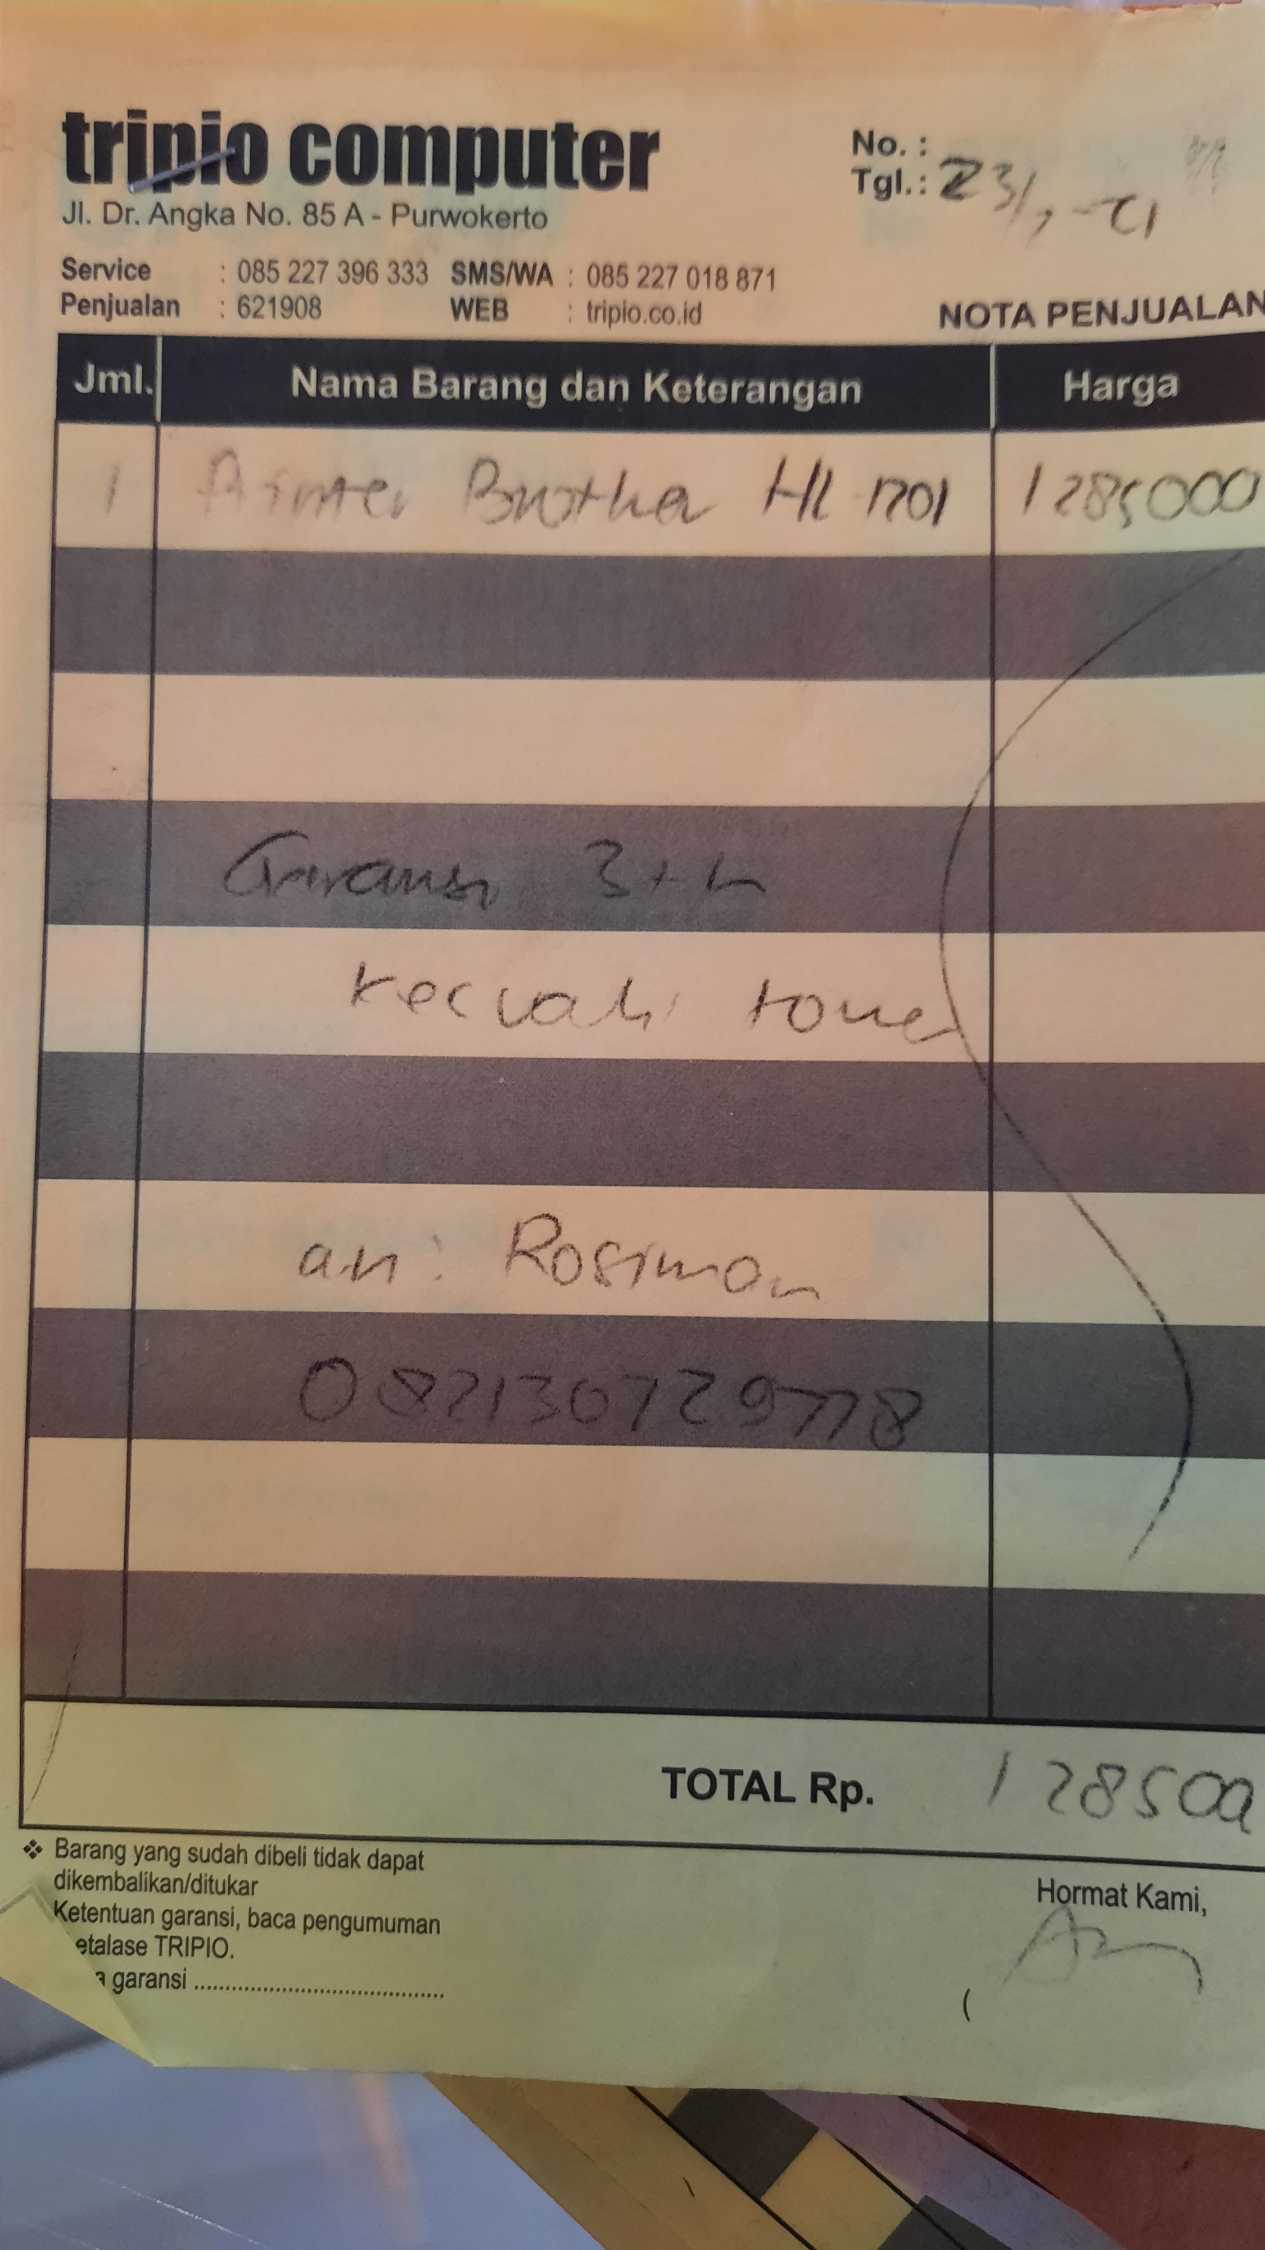 tripio computer
Jl. Dr. Angka No. 85 A - Purwokerto
No. :
Tgl. : 23/
Service : 085 227 396 333 SMS/WA : 085 227 018 871
Penjualan : 621908 WEB : tripio.co.id
NOTA PENJUALAN
Jml. Nama Barang dan Keterangan Harga
1 Printer Brother HL 1201 1285000
Garansi 3 th
kecuali toner
an : Rosiman
082130729778
TOTAL Rp. 128500
❖ Barang yang sudah dibeli tidak dapat
dikembalikan/ditukar
Ketentuan garansi, baca pengumuman
etalase TRIPIO.
a garansi ........................................
Hormat Kami,
(